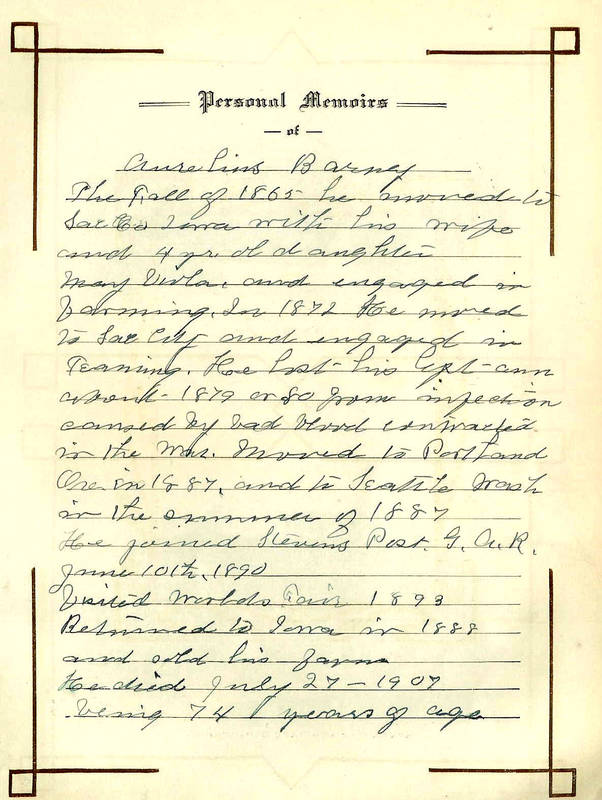 Personal Memoirs
of
Aurelius Barney
The Fall of 1865 he moved to
Sac Co Iowa with his wife
and 4 yr. old daughter
May Viola. and engaged in
Farming. In 1872 He moved
to Sac City and engaged in
Teaming. He lost his left arm
about 1879 or 80 from infection
caused by bad blood contracted
in the War. Moved to Portland
Ore. in 1887, and to Seattle Wash
in the summer of 1887
He joined Stevens Post. G. A. R.
June 10th, 1890
Visited Worlds Fair 1893
Returned to Iowa in 1888
and sold his farm
He died July 27 – 1907
being 74 years of age